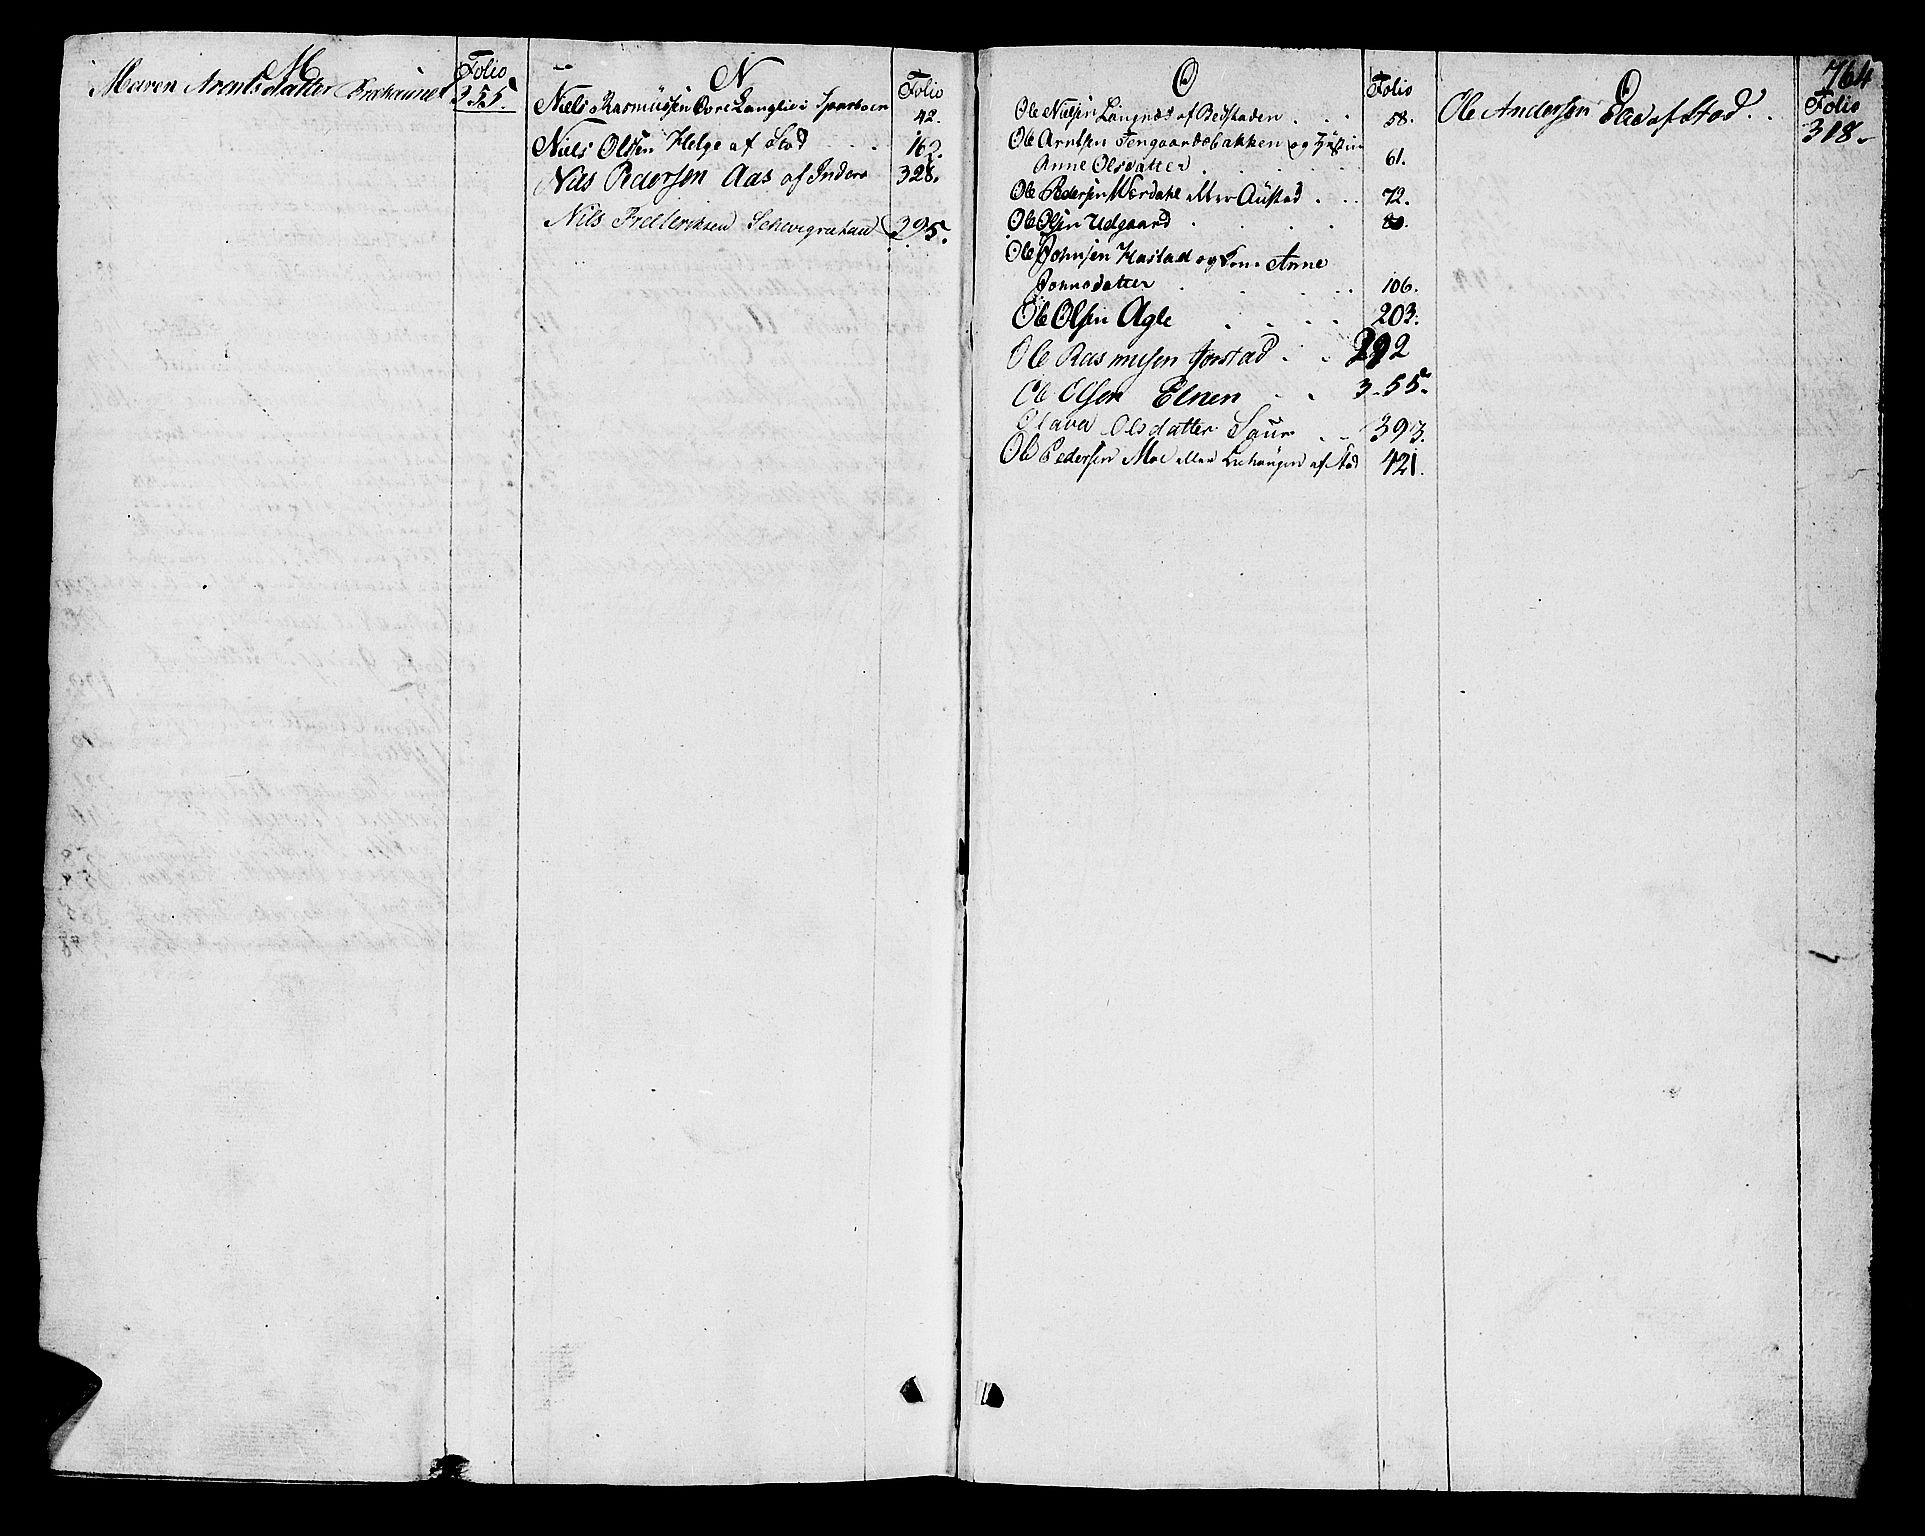 M
Folio
Maren Arentsdatter
355.
N
Folio
Niels Rasmüssen Övre Langlie i Sparboen 42.
Niels Olsen Helge af Stod 162.
Nils Pedersen Aas af Inderø 328.
Nils Frederiksen 295.
O
Folio
Ole Nielsen Langnæs af Bedstaden 58.
Ole Arntsen Fengaardsbakken og
Anne Olsdatter 61.
Ole Pedersen Werdahl eller Aüstad 72.
Ole Olsen Udgaard 80.
Ole Johnsen Hastad og Kone Anne
Jonnsdatter 106.
Ole Olsen Agle 203.
Ole Rasmusen 292
Ole Olsen Elnen 355.
Olava Olsdatter Saur 393.
Ole Pedersen Moe eller af Stod 421.
764
O
Folio
Ole Andersen Elde af Stod 318.